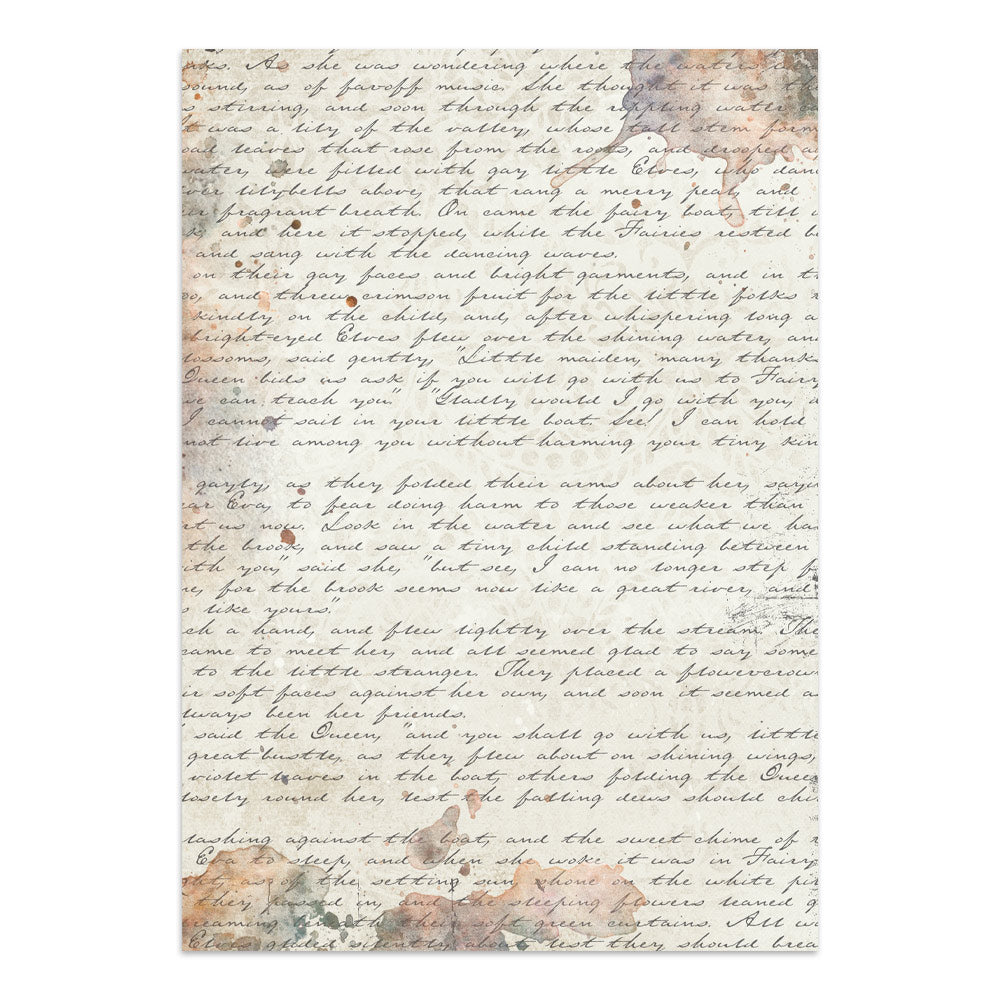 rks. As she was wondering where the waters
sound, as of faroff music. She thought it was t
s stirring, and soon through the rippling water c
t was a lily of the valley, whose tall stem form
oad leaves that rose from the roots, and drooped a
water, were filled with gay little Elves, who danc
ver lilybells above, that rang a merry peal, and
ir fragrant breath. On came the fairy boat, till i
k, and here it stopped, while the Fairies rested b
and sang with the dancing waves.
on their gay faces and bright garments, and in t
oo, and threw crimson fruit for the little folks
kindly on the child, and, after whispering long a
bright-eyed Elves flew over the shining water, an
lossoms, said gently, "Little maiden, many thank
Queen bids us ask if you will go with us to Fairy
we can teach you." "Gladly would I go with you,
I cannot sail in your little boat. See! I can hold
not live among you without harming your tiny kin
gayly, as they folded their arms about her, sayi
ar Eva, to fear doing harm to those weaker than
rt us now. Look in the water and see what we ha
the brook, and saw a tiny child standing between
ith you," said she, "but see, I can no longer step f
ne, for the brook seems now like a great river, and
s like yours."
ch a hand, and flew lightly over the stream. The
came to meet her, and all seemed glad to say some
to the little stranger. They placed a flowercrow
ir soft faces against her own, and soon it seemed a
lways been her friends.
"said the Queen, "and you shall go with us, little
great bustle, as they flew about on shining wings,
violet leaves in the boat, others folding the Quee
losely round her, lest the falling dews should chi
lashing against the boat, and the sweet chime of
Eva to sleep, and when she woke it was in Fairy
ght, as of the setting sun, shone on the white pi
they passed in, and the sleeping flowers leaned g
reaming breath their soft green curtains. All w
Elves glided silently about, lest they should brea